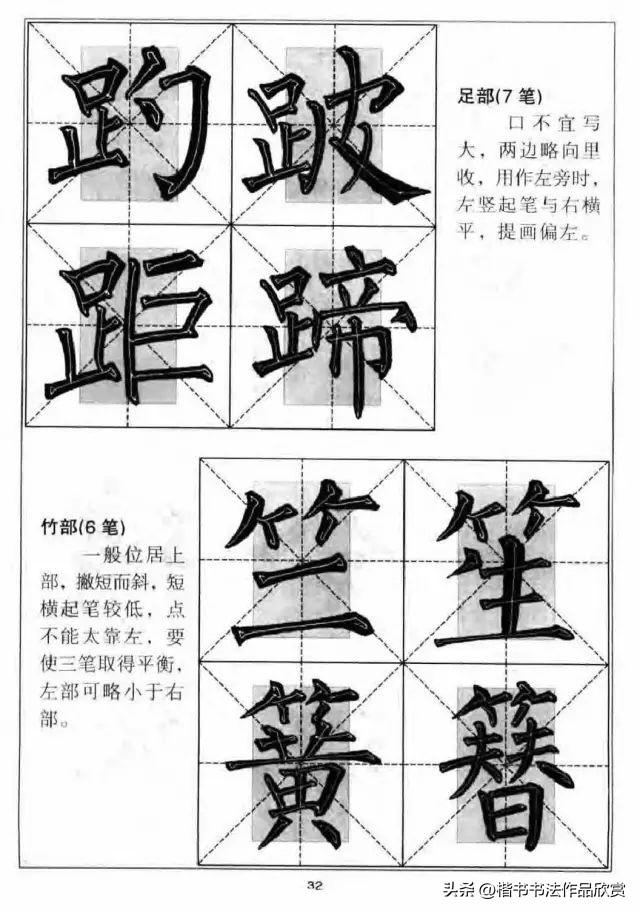 趵 跛
足部(7 笔)
口不宜写
大，两边略向里
收，用作左旁时，
左竖起笔与右横
平，提画偏左。
距 蹄
竺 笙
竹部(6 笔)
一般位居上
部，撇短而斜，短
横起笔较低，点
不能太靠左，要
使三笔取得平衡，
左部可略小于右
部。
簧 簪
32
头条 @楷书书法作品欣赏